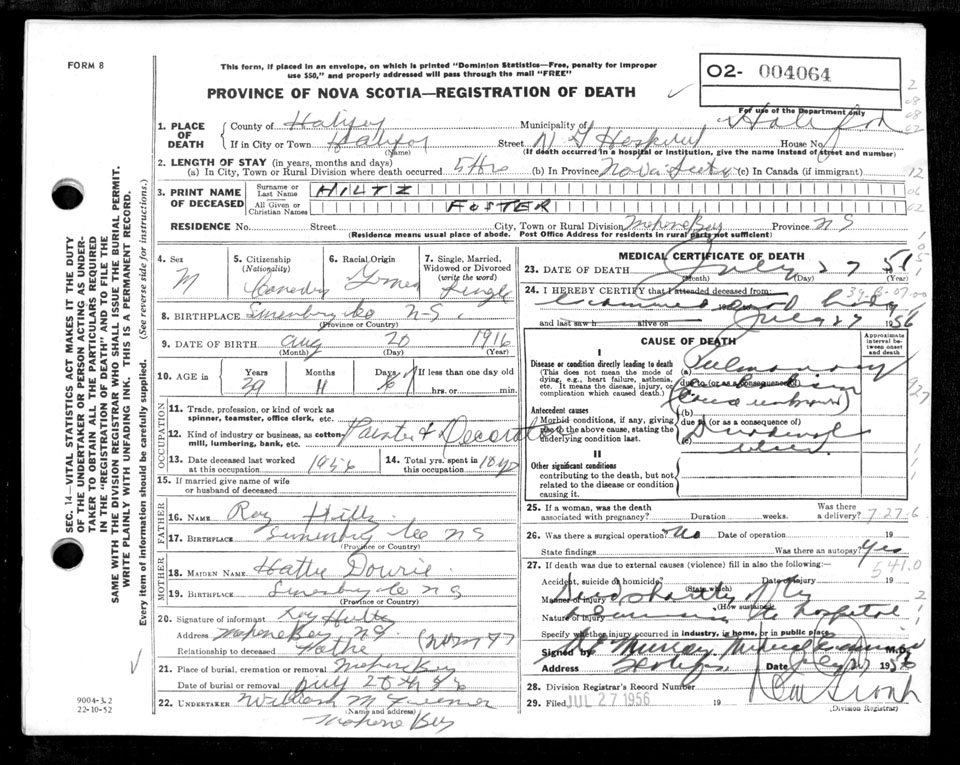 FORM 8
This form, if placed in an envelope, on which is printed "Dominion Statistics—Free, penalty for improper
use $50," and properly addressed will pass through the mail "FREE"
O2- 004064
For use of the Department only
PROVINCE OF NOVA SCOTIA—REGISTRATION OF DEATH
1. PLACE OF DEATH
County of Halifax Municipality of Halifax
If in City or Town Halifax (Name) Street V G Hospital House No.
(If death occurred in a hospital or institution, give the name instead of street and number)
2. LENGTH OF STAY (in years, months and days)
(a) In City, Town or Rural Division where death occurred 5 Hrs (b) In Province Nova Scotia (c) In Canada (if immigrant)
3. PRINT NAME OF DECEASED
Surname or Last Name HILTZ
All Given or Christian Names FOSTER
RESIDENCE No. Street City, Town or Rural Division Mahone Bay Province N S
(Residence means usual place of abode. Post Office Address for residents in rural parts not sufficient)
4. Sex M
5. Citizenship (Nationality) Canadian
6. Racial Origin
7. Single, Married, Widowed or Divorced (write the word) Single
8. BIRTHPLACE Lunenburg Co N-S.
(Province or Country)
9. DATE OF BIRTH Aug 20 1916
(Month) (Day) (Year)
10. AGE in Years Months Days If less than one day old
39 11 hrs. or min.
OCCUPATION
11. Trade, profession, or kind of work as
spinner, teamster, office clerk, etc.
12. Kind of industry or business, as cotton
mill, lumbering, bank, etc.
Painter & Decorator
13. Date deceased last worked
at this occupation 1956
14. Total yrs. spent in
this occupation 18 yrs
15. If married give name of wife
or husband of deceased
FATHER
16. NAME Roy Hiltz
17. BIRTHPLACE Lunenburg Co N S
(Province or Country)
MOTHER
18. MAIDEN NAME Hattie
19. BIRTHPLACE Lunenburg Co N S
(Province or Country)
20. Signature of informant Roy Hiltz
Address Mahone Bay N S.
Relationship to deceased Father
21. Place of burial, cremation or removal Mahone Bay
Date of burial or removal July
22. UNDERTAKER William M
(Name and address)
Mahone Bay
9004-3.2
22-10-52
SEC. 14—VITAL STATISTICS ACT MAKES IT THE DUTY
OF THE UNDERTAKER OR PERSON ACTING AS UNDER-
TAKER TO OBTAIN ALL THE PARTICULARS REQUIRED
IN THE "REGISTRATION OF DEATH" AND TO FILE THE
SAME WITH THE DIVISION REGISTRAR WHO SHALL ISSUE THE BURIAL PERMIT.
WRITE PLAINLY WITH UNFADING INK. THIS IS A PERMANENT RECORD.
Every item of information should be carefully supplied. (See reverse side for instructions.)
MEDICAL CERTIFICATE OF DEATH
23. DATE OF DEATH July 27 56
(Month) (Day) (Year)
24. I HEREBY CERTIFY that I attended deceased from:
Examined body
and last saw h alive on July 27 1956
CAUSE OF DEATH
Approximate interval between onset and death
I
Disease or condition directly leading to death
(This does not mean the mode of dying, e.g., heart failure, asthenia, etc. It means the disease, injury, or complication which caused death.)
(a) Pulmonary
due to (or as a consequence of)
Antecedent causes
Morbid conditions, if any, giving rise to the above cause, stating the underlying condition last.
(b)
due to (or as a consequence of)
Duodenal
ulcer
II
Other significant conditions
contributing to the death, but not related to the disease or condition causing it.
25. If a woman, was the death
associated with pregnancy? Duration weeks. Was there a delivery?
26. Was there a surgical operation? No Date of operation 19
State findings Was there an autopsy? Yes
27. If death was due to external causes (violence) fill in also the following:— 541.0
Accident, suicide or homicide? (State which) Date of injury 19
Manner of injury Died shortly after
(How sustained)
Nature of injury hospital
Specify whether injury occurred in industry, in home, or in public place
Signed by Murray Medical Examiner M.D.
Address Halifax Date July 27 1956
28. Division Registrar's Record Number
29. Filed JUL 27 1956 19
(Division Registrar)